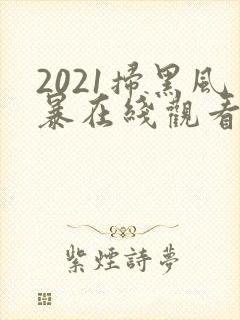 2021掃黑风
暴在綫觀看
紫煙詩夢